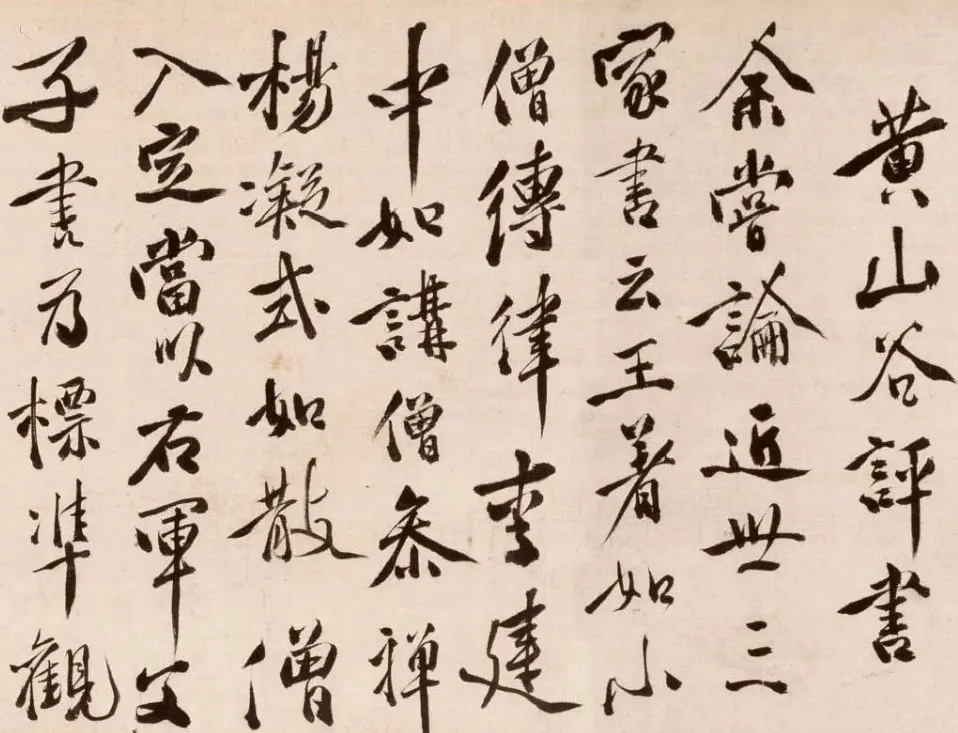 黃山谷評書
余嘗論近世三
家書云王著如小
僧傳律李建
中如講僧參禪
楊凝式如散僧
入定當以右軍父
子書為標準觀